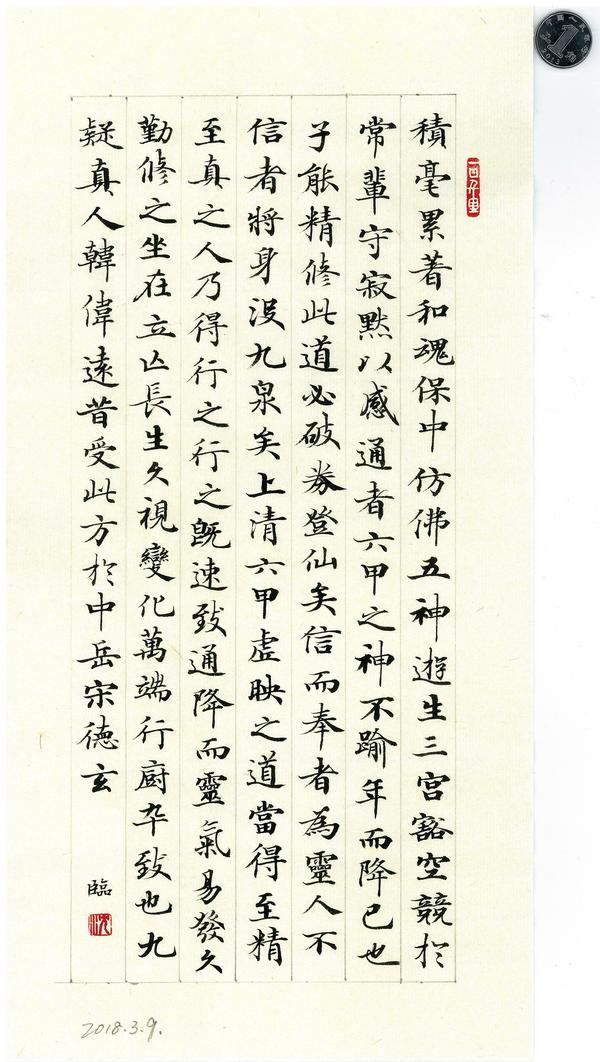 積毫累著和魂保中仿佛五神遊生三宮豁空競於
常輩守寂默以感通者六甲之神不踰年而降已也
子能精修此道必破券登仙矣信而奉者為靈人不
信者將身沒九泉矣上清六甲虛映之道當得至精
至真之人乃得行之行之既速致通降而靈氣易發久
勤修之坐在立亡長生久視變化萬端行廚卒致也九
疑真人韓偉遠昔受此方於中岳宋德玄
臨
沈
2018.3.9.
1